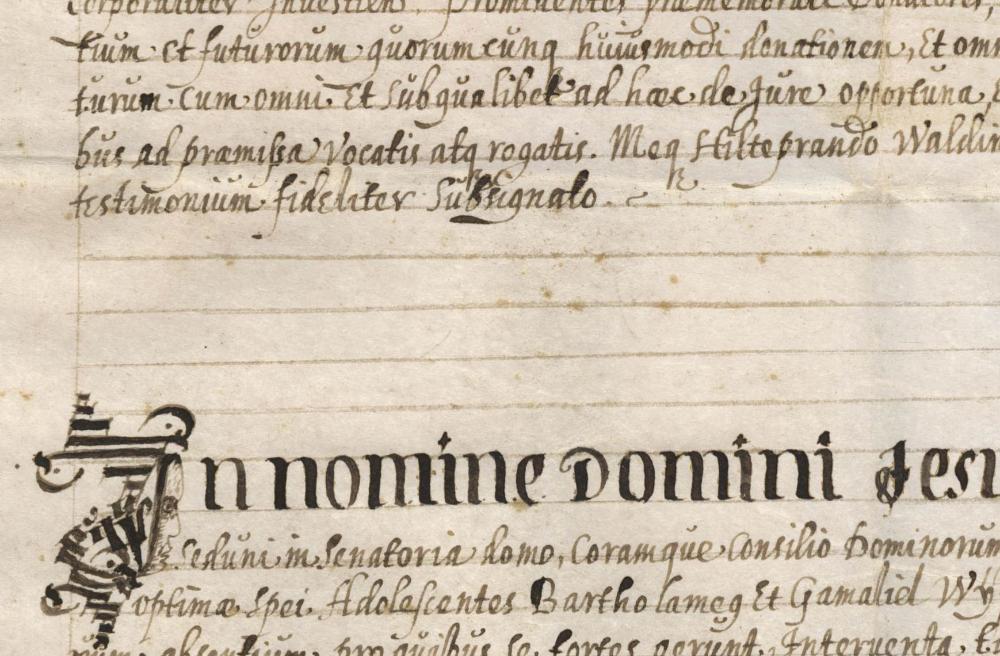 corporaliter Investien. Prominentes praememorati Donatores,
tium et futurorum quorumcunq huiusmodi donationen, Et omn
turum cum omni Et Subqualibet ad haec de Jure opportuna,
bus ad praemissa Vocatis atq rogatis. Meq Hilteprando Waldin
testimonium fideliter Subsignato.
In nomine Domini Jesu
Seduni in Senatoria domo, Coramque Consilio Dominorum
optimae Spei Adolescentes Bartholameq Et Gamaliel Wy
rum absentium, pro quibus se fortes gerunt, Interventa,